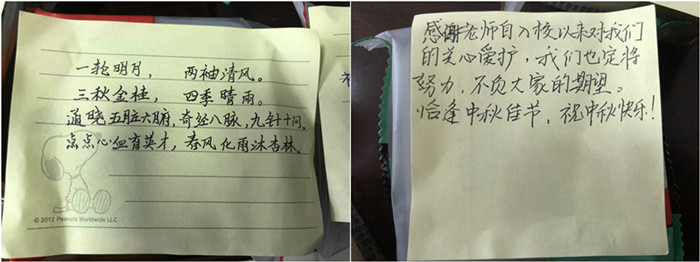 一轮明月， 两袖清风。
三秋金桂， 四季晴雨。
通晓五脏六腑，奇经八脉，九针十问。
点点心血育英才，春风化雨沐杏林。
© 2012 Peanuts Worldwide LLC
感谢老师自入校以来对我们
的关心爱护，我们也定将
努力，不负大家的期望。
恰逢中秋佳节，祝中秋快乐！